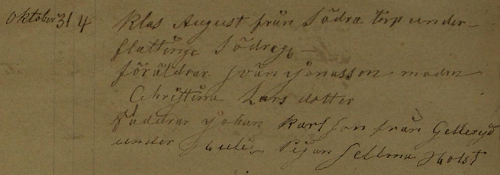 Oktober 31 4 Klas August från Södra torp under
flattinge Södrege
föräldrar Svän Jönasson moden
Christina Lars dotter
faddrar Johan Karlson från Gelleryd
under pijan Sellma Holst